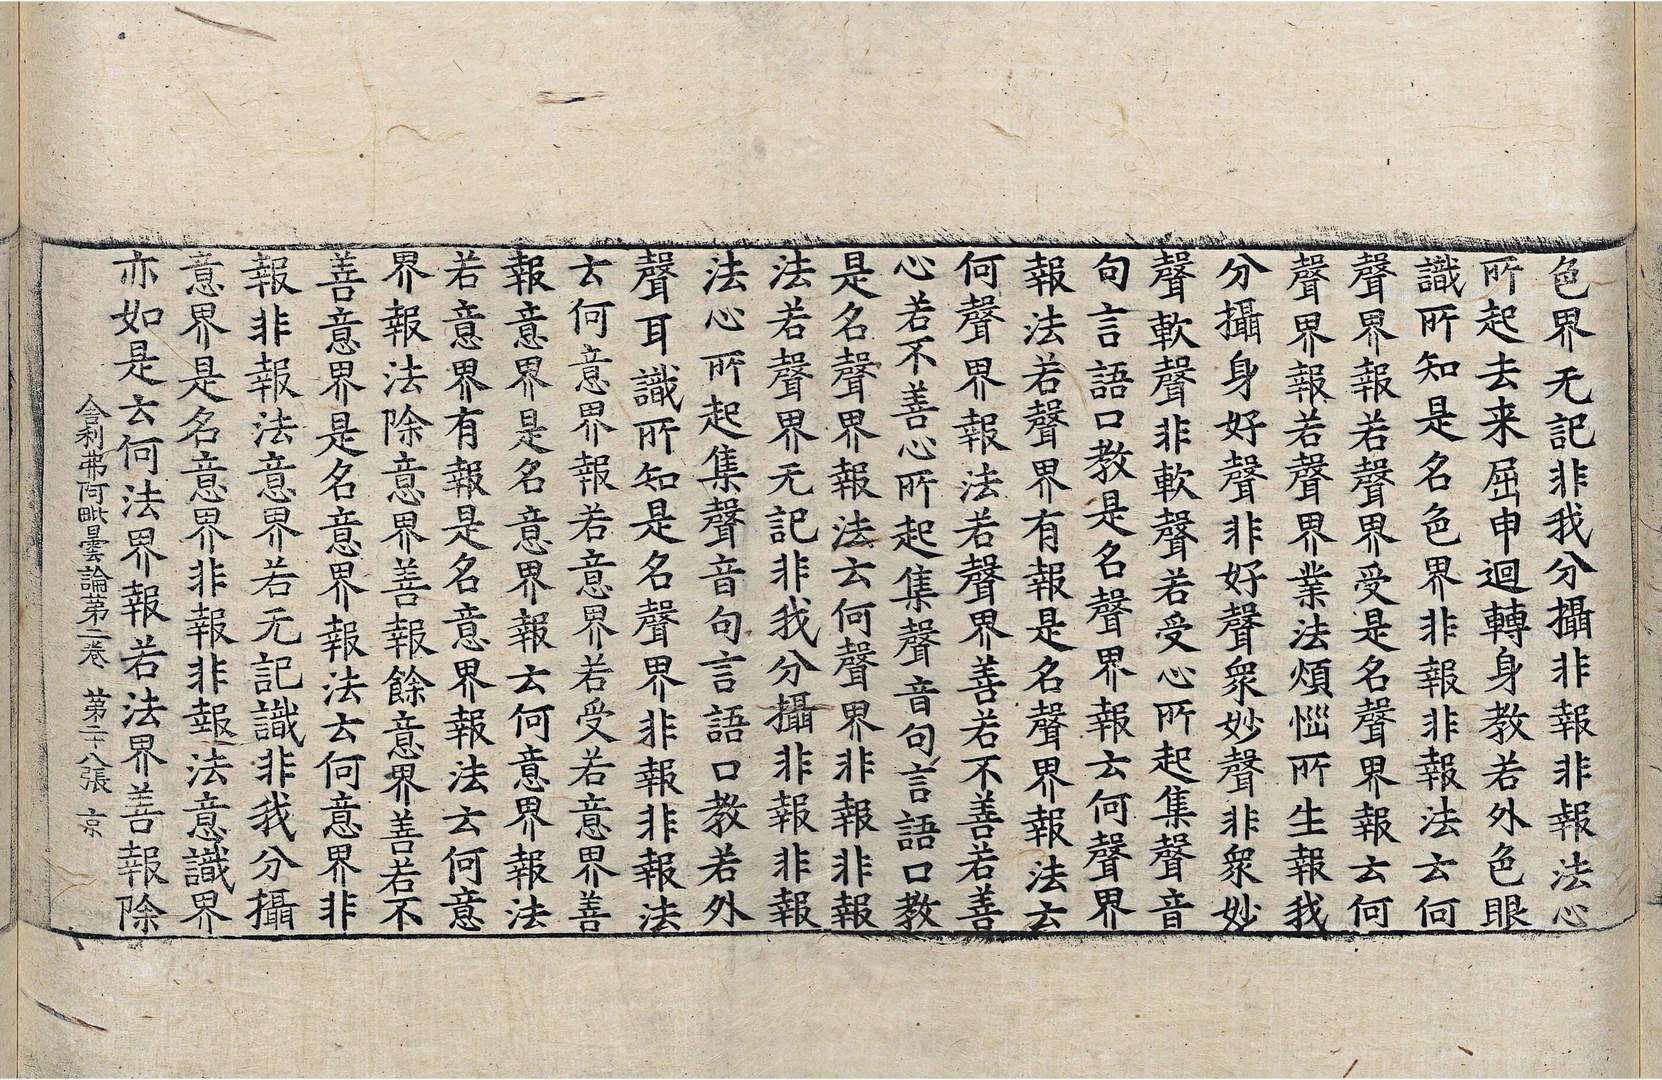 色界无記非我分攝非報非報法心
所起去来屈申迴轉身教若外色眼
識所知是名色界非報非報法云何
聲界報若聲界受是名聲界報云何
聲界報若聲界業法煩惱所生報我
分攝身好聲非好聲衆妙聲非衆妙
聲軟聲非軟聲若受心所起集聲音
句言語口教是名聲界報云何聲界
報法若聲界有報是名聲界報法云
何聲界報法若聲界善若不善若善
心若不善心所起集聲音句言語口教
是名聲界報法云何聲界非報非報
法若聲界无記非我分攝非報非報
法心所起集聲音句言語口教若外
聲耳識所知是名聲界非報非報法
云何意界報若意界若受若意界善
報意界是名意界報云何意界報法
若意界有報是名意界報法云何意
界報法除意界善報餘意界善若不
善意界是名意界報法云何意界非
報非報法意界若无記識非我分攝
意界是名意界非報非報法意識界
亦如是云何法界報若法界善報除
舍利弗阿毗曇論第二卷 第二十八張 京